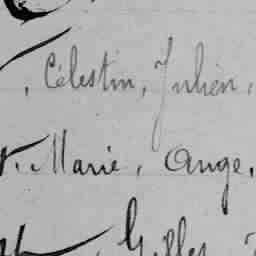 , Célestin, Julien,
. Marie, Ange,
, Gilles